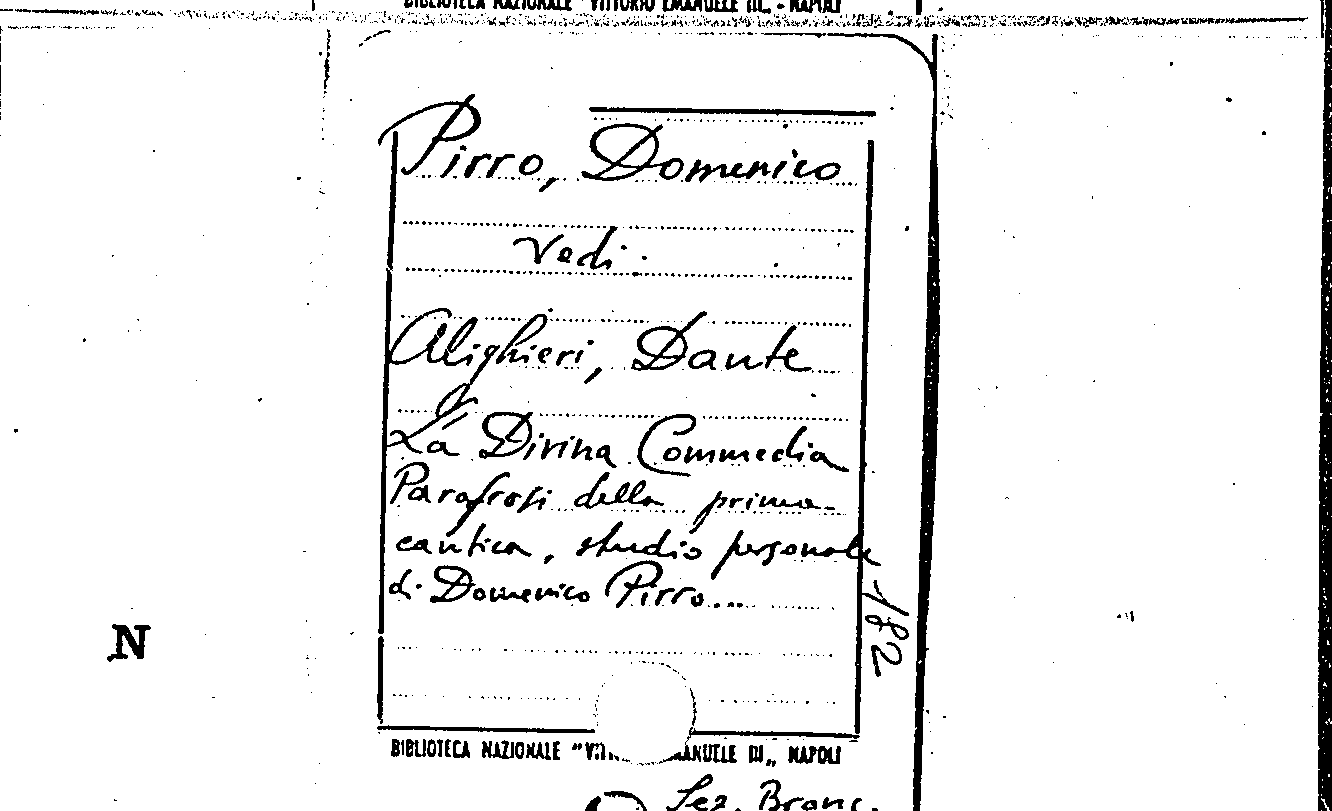 BIBLIOTECA NAZIONALE "VITTORIO EMANUELE III„ - NAPOLI
Pirro, Domenico
Vedi:
Alighieri, Dante
La Divina Commedia
Parafrasi della prima
cantica, studio personale
di Domenico Pirro...
182
N
BIBLIOTECA NAZIONALE "VITT EMANUELE III„ NAPOLI
Sez. Branc.